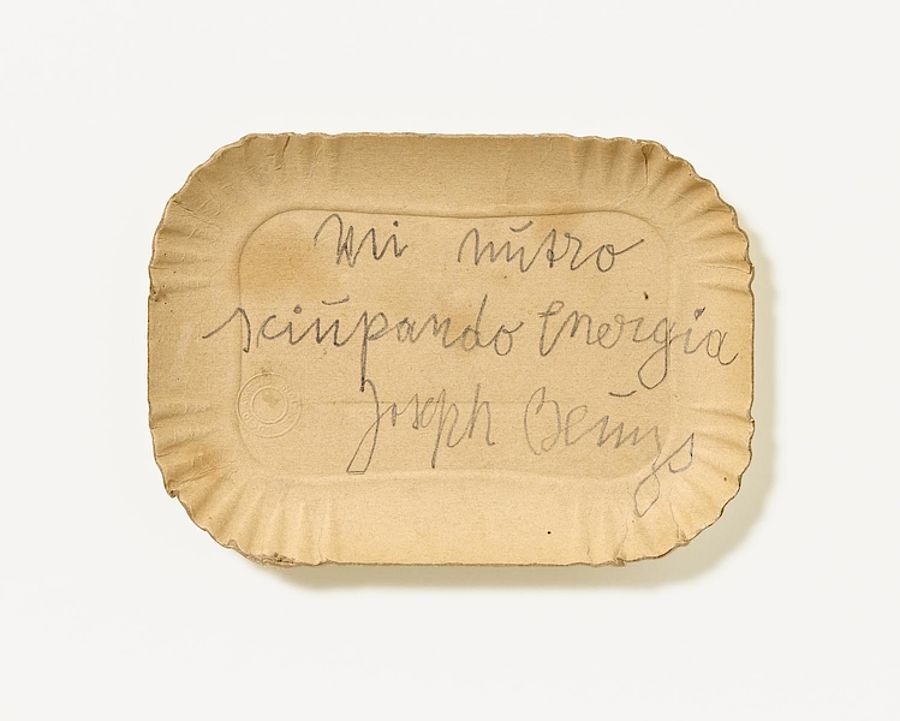 Mi nutro
sciupando Energia
Joseph Beuys